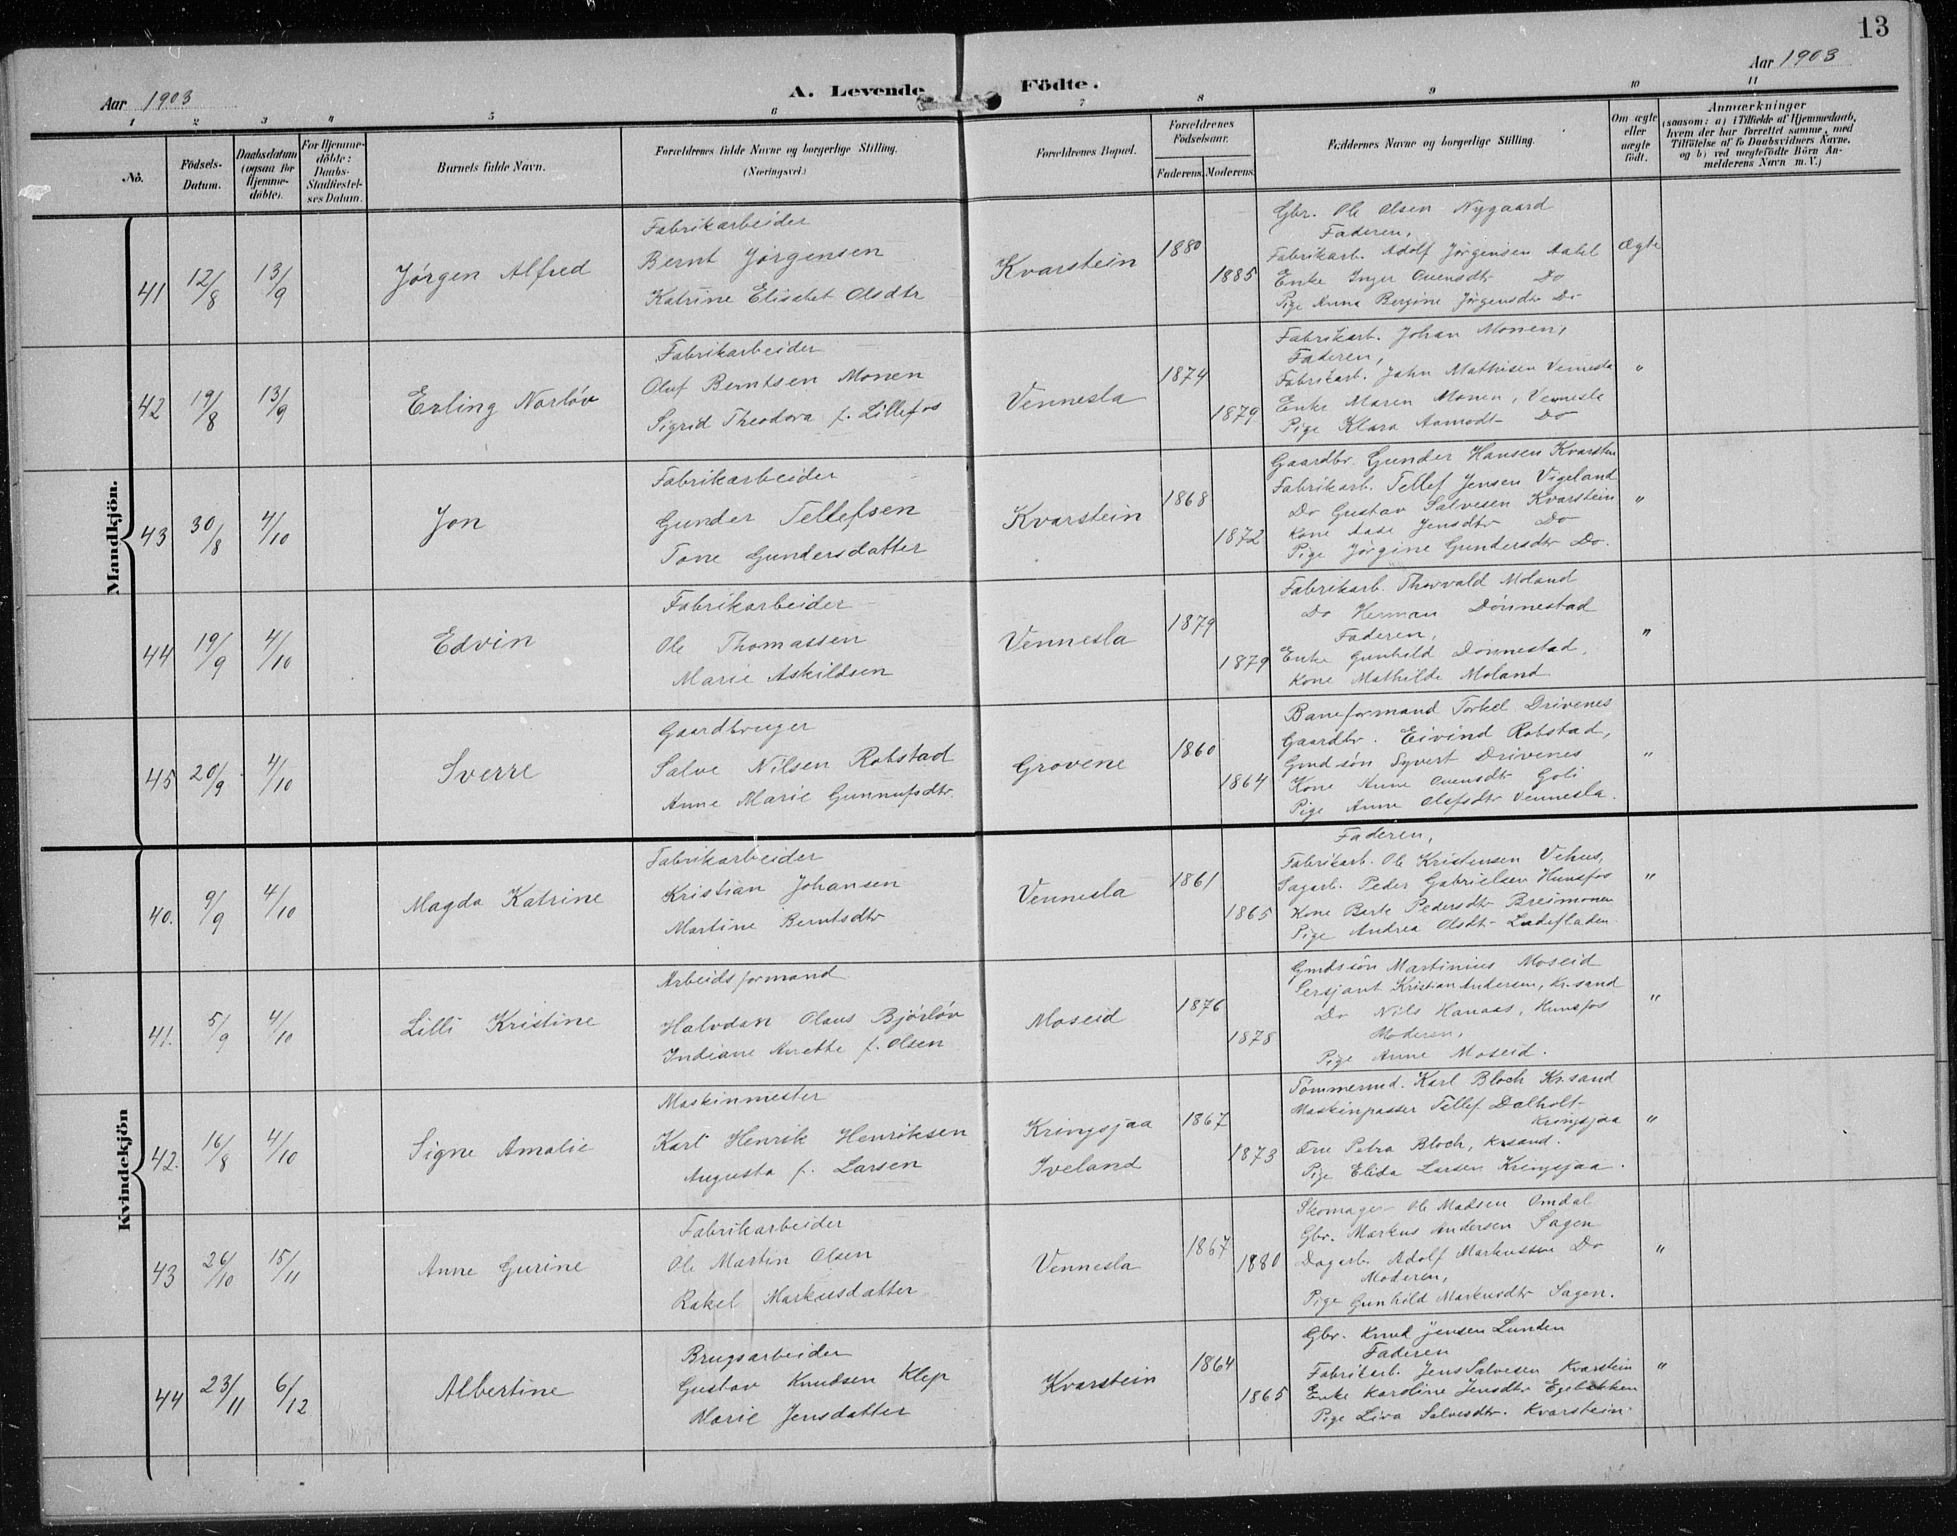 13
Aar 1903
A. Levende Födte.
Aar 1903
1 2 3 4 5 6 7 8 9 10 11
No.
Födsels-Datum.
Daabsdatum (ogsaa for Hjemme-döbte).
For Hjemme-döbte: Daabs-Stadfæstel-ses Datum.
Barnets fulde Navn.
Forældrenes fulde Navne og borgerlige Stilling.
(Næringsvei.)
Forældrenes Bopæl.
Forældrenes Födselsaar.
Faderens. Moderens.
Faddernes Navne og borgerlige Stilling.
Om ægte eller uægte födt.
Anmærkninger
(saasom: a) i Tilfælde af Hjemmedaab,
hvem der har forrettet samme, med
Tilföielse af to Daabsvidners Navne,
og b) ved uægtefödte Börn An-
melderens Navn m. V.)
Mandkjön.
41 12/8 13/9 Jörgen Alfred
Fabrikarbeider
Bernt Jörgensen
Katrine Elisabet Olsdtr
Kvarstein 1880 1885
Gbr. Ole Olsen Nygaard
Faderen,
Fabrikarb. Adolf Jörgensen Aabel
Enke Inger Ouensdtr Do
Pige Anna Bergine Jörgensdtr Do
Ægte
42 19/8 13/9 Erling Norløv
Fabrikarbeider
Oluf Berntsen Monen
Sigrid Theodora f. Lillefos
Vennesla 1874 1879
Fabrikarb. Johan Monen,
Faderen,
Fabrikarb. John Mathisen Vennesla
Enke Maren Monen, Vennesla
Pige Klara Aamodt Do
"
43 30/8 4/10 Jon
Fabrikarbeider
Gunder Tellefsen
Tone Gundersdatter
Kvarstein 1868 1872
Gaardbr. Gunder Hansen Kvarstein
Fabrikarb. Tellef Jensen Vigeland
Do Gustav Salvesen Kvarstein
Kone Aase Jensdtr Do
Pige Jørgine Gundersdtr Do.
"
44 19/9 4/10 Edvin
Fabrikarbeider
Ole Thomassen
Marie Askildsen
Vennesla 1879 1879
Fabrikarb. Thorvald Moland
Do Herman Dønnestad
Faderen,
Enke Gunhild Dønnestad,
Kone Mathilde Moland
"
45 20/9 4/10 Sverre
Gaardbruger
Salve Nilsen Robstad
Anne Marie Gunnufsdtr.
Grovene 1860 1864
Baneformand Torkel Drivenes
Gaardbr. Eivind Robstad,
Gmdsøn Syvert Drivenes
Kone Anne Ouensdtr Goli
Pige Anne Olafsdtr Vennesla.
"
Kvindekjön
40. 9/9 4/10 Magda Katrine
Fabrikarbeider
Kristian Johansen
Martine Berntsdtr
Vennesla 1861 1865
Faderen,
Fabrikarb. Ole Kristensen Vehus,
Sagarb. Peder Gabrielsen Hunsfos
Kone Berte Pedersdtr Breimonen
Pige Andrea Olsdtr Ladefladen
"
41. 5/9 4/10 Lilli Kristine
Arbeidsformand
Halvdan Olaus Bjørløv
Indiane Anette f. Olsen
Moseid 1876 1878
Gmdssön Martinius Moseid
Sersjant Kristian Andersen, Kr.sand
Do Nils Hanaas, Hunsfos
Moderen,
Pige Anne Moseid.
"
42. 16/8 4/10 Signe Amalie
Maskinmester
Karl Henrik Henriksen
Augusta f. Larsen
Kringsjaa
Iveland
1867 1873
Tømmermd. Karl Bloch Kr.sand
Maskinpasser Tellef Dalholt
Kringsjaa
Frue Petra Bloch, Kr.sand.
Pige Elida Larsen Kringsjaa.
"
43 26/10 15/11 Anne Gurine
Fabrikarbeider
Ole Martin Olsen
Rakel Markusdatter
Vennesla 1867 1880
Skomager Ole Madsen Omdal
Gbr. Markus Andersen Sagen
Dagarb. Adolf Markussen Do
Moderen,
Pige Gunhild Markusdtr Sagen.
"
44 23/11 6/12 Albertine
Brugsarbeider
Gustav Knudsen Klep
Marie Jensdatter
Kvarstein 1864 1865
Gbr. Knud Jensen Lunden
Faderen
Fabrikarb. Jens Salvesen Kvarstein
Enke Karoline Jensdtr Egebakken
Pige Liva Salvesdtr. Kvarstein.
"